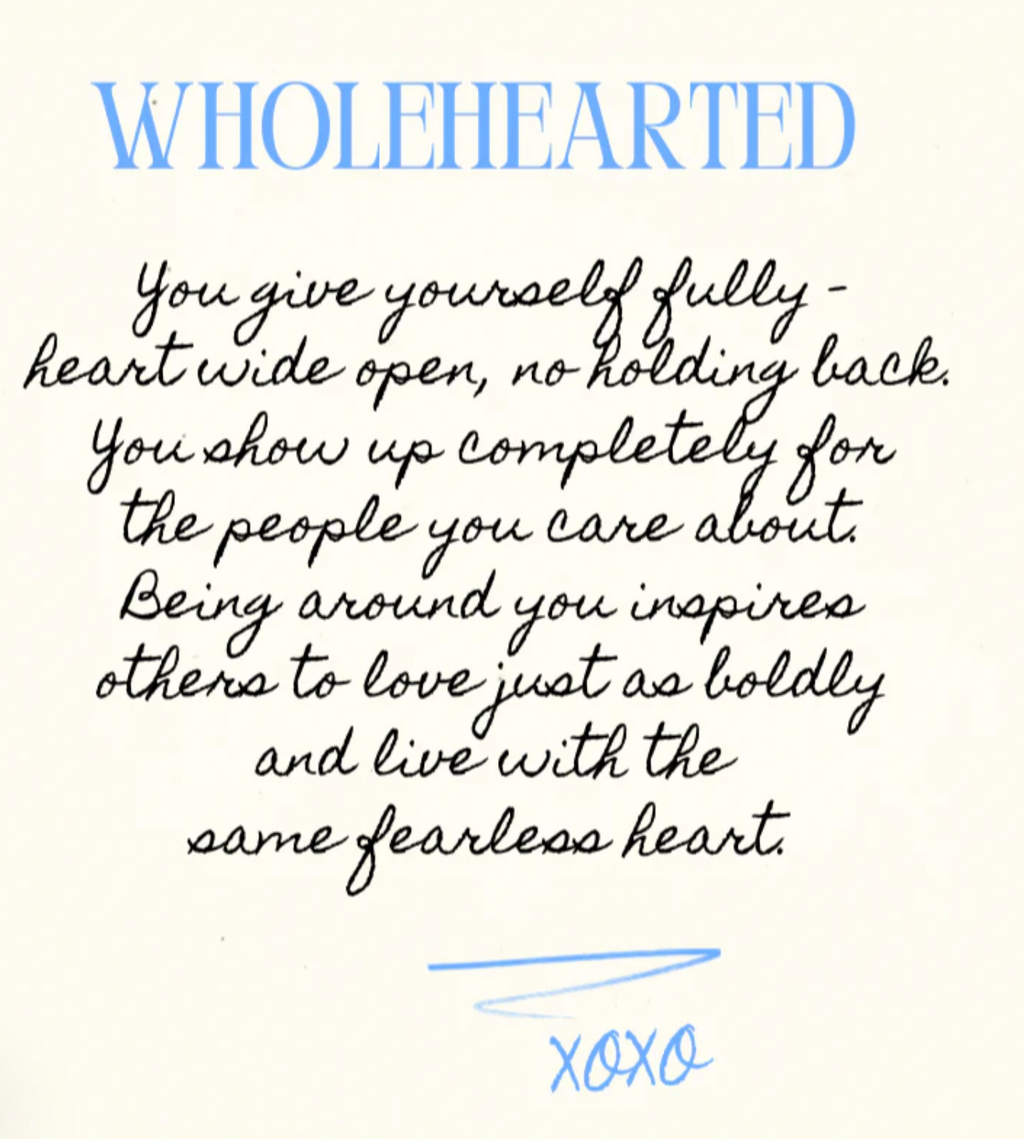 WHOLEHEARTED
You give yourself fully -
heart wide open, no holding back.
You show up completely for
the people you care about.
Being around you inspires
others to love just as boldly
and live with the
same fearless heart.
XOXO